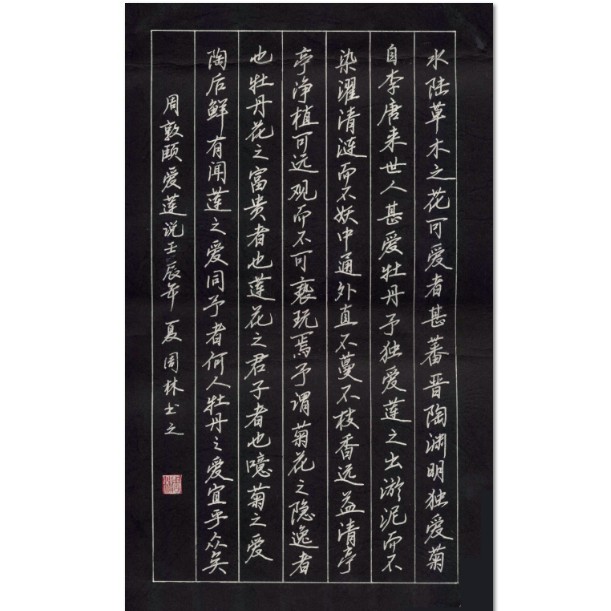 水陆草木之花可爱者甚蕃晋陶渊明独爱菊
自李唐来世人甚爱牡丹予独爱莲之出淤泥而不
染濯清涟而不妖中通外直不蔓不枝香远益清亭
亭净植可远观而不可亵玩焉予谓菊花之隐逸者
也牡丹花之富贵者也莲花之君子者也噫菊之爱
陶后鲜有闻莲之爱同予者何人牡丹之爱宜乎众矣
周敦颐爱莲说壬辰年夏周林书之